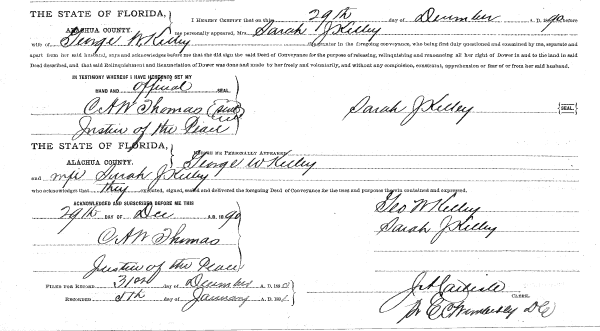 THE STATE OF FLORIDA, I HEREBY CERTIFY that on this 29th day of December A. D. 1890 before
ALACHUA COUNTY. me personally appeared, Mrs. Sarah J Kelley
wife of George W Kelley the foregoing conveyance, who being first duly questioned and examined by me, separate and
apart from her said husband, says and acknowledges before me that she did sign the said Deed of Conveyance for the purpose of releasing, relinquishing and renouncing all her right of Dower in and to the land in said
Deed described, and that said Relinquishment and Renunciation of Dower was done and made by her freely and voluntarily, and without any compulsion, constraint, apprehension or fear of or from her said husband.
IN TESTIMONY WHEREOF I HAVE HEREUNTO SET MY
HAND AND official SEAL.
C A W Thomas (seal) Sarah J Kelley {SEAL}
Justice of the Peace
THE STATE OF FLORIDA, BEFORE ME PERSONALLY APPEARED
ALACHUA COUNTY. George W Kelley
and wife Sarah J Kelley
who acknowledges that they executed, signed, sealed and delivered the foregoing Deed of Conveyance for the uses and purposes therein contained and expressed,
ACKNOWLEDGED AND SUBSCRIBED BEFORE ME THIS Geo W Kelley
29th DAY OF Dec A. D. 1890 Sarah J Kelley
C A W Thomas
Justice of the Peace
FILED FOR RECORD 31st day of December A. D. 1890
RECORDED 5th day of January A. D. 1891 CLERK.
Pr E C Wimberly D C